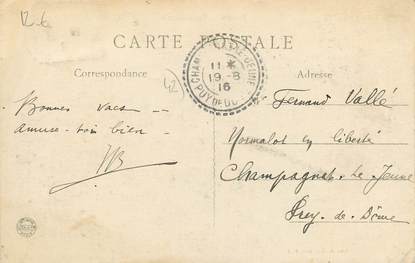 R. 6
CARTE POSTALE
Correspondance
Adresse
CHAM LE-JEUNE
11 *
19 - 8
16
PUY-DE-DÔME
42
Bonnes vacs —
amuse-toi bien —
Fernand Vallé
Normalot en liberté
Champagnat-Le Jeune
Puy-de-Dôme